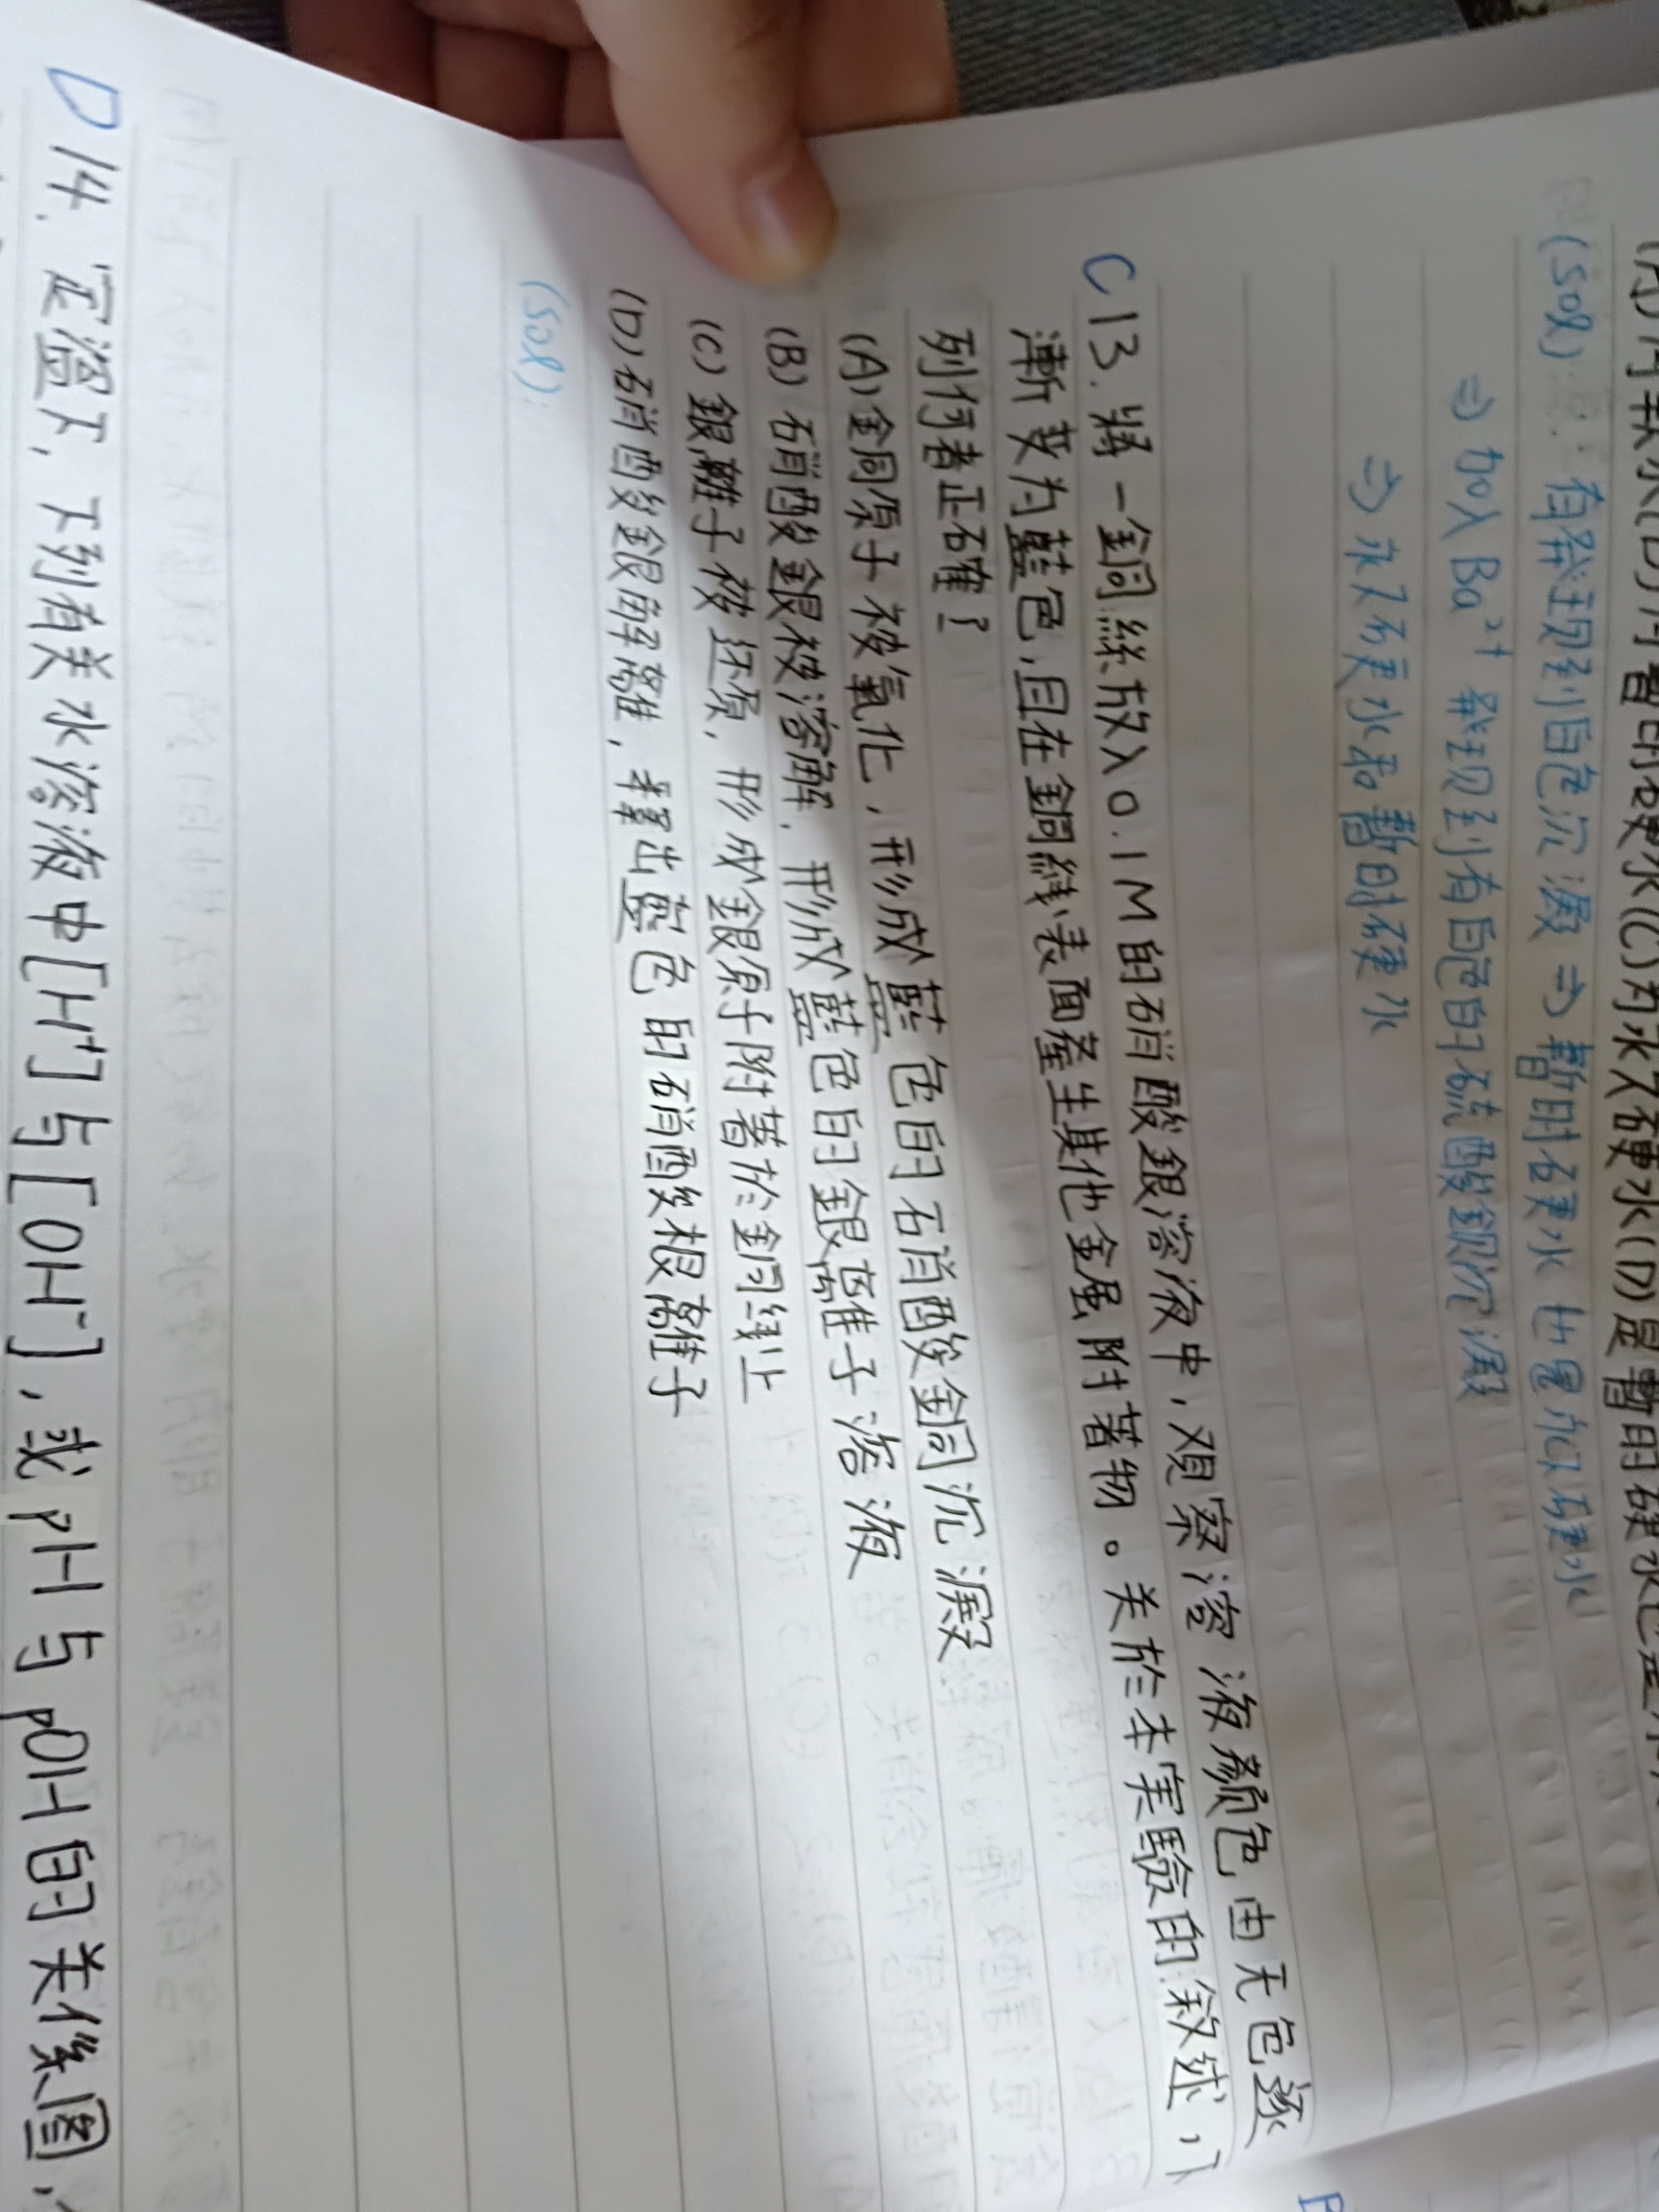 水(C)为永久硬水(D)是暂时硬水也是
(sol): 有発現到白色沉澱 ⇒ 暫時硬水 也是永久硬水
⇒ 加入 Ba²⁺ 発現到有白色的硫酸鋇沉澱
⇒ 永久硬水和暫时硬水
C 13. 將一銅絲放入0.1M的硝酸銀溶液中,观察溶液颜色由无色逐
漸变为藍色,且在銅綫表面產生其他金属附著物。关於本実驗的敘述,下
列何者正確?
(A)銅原子被氧化,形成藍色的硝酸銅沉澱
(B)硝酸銀被溶解,形成藍色的銀離子溶液
(C)銀離子被还原,形成銀原子附著於銅线上
(D)硝酸銀解離,釋出藍色的硝酸根離子
(sol):
D 14. 定溫下,下列有关水溶液中[H⁺]与[OH⁻],或pH与pOH的关係圖,